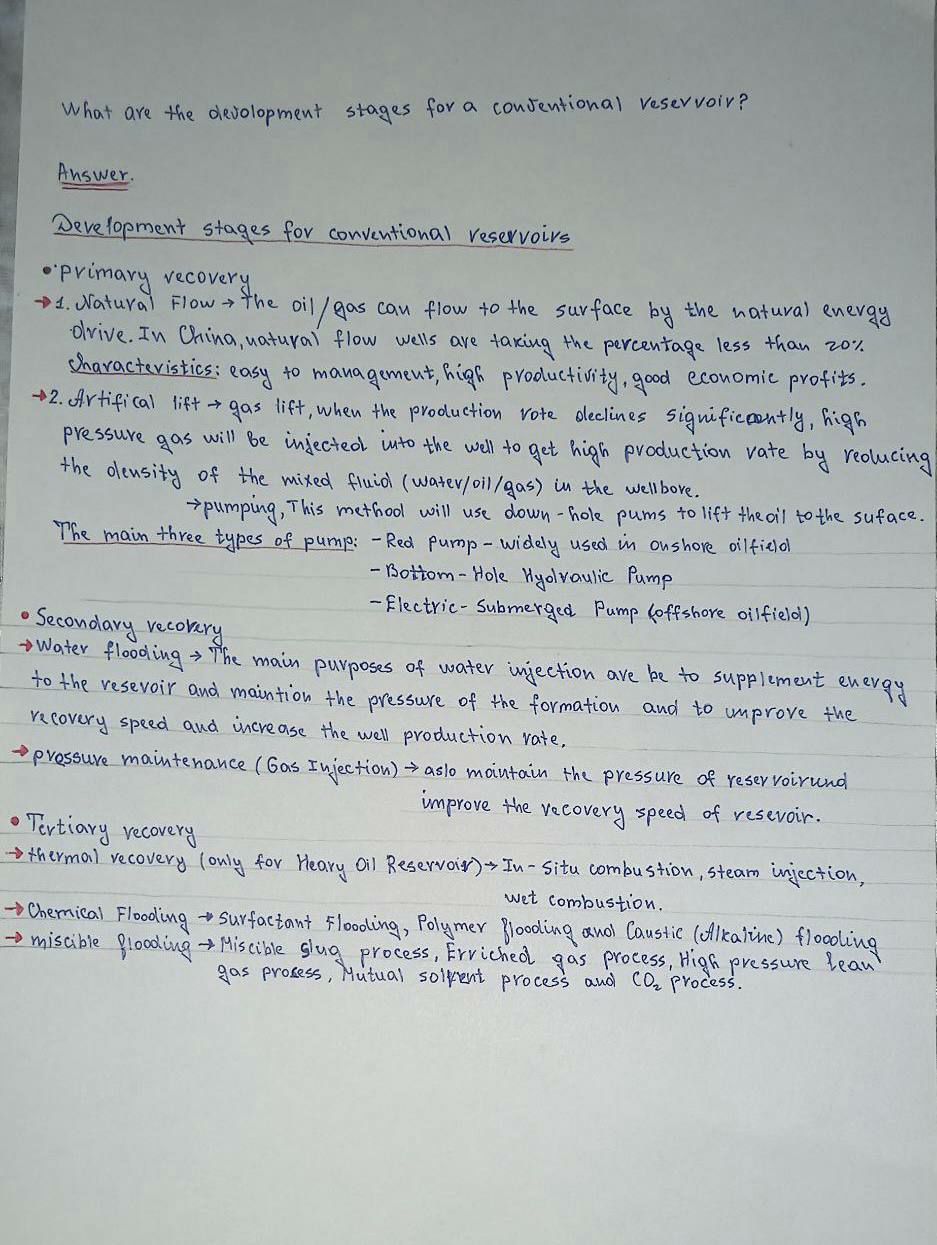 What are the devolopment stages for a conventional reservoir?
Answer.
Development stages for conventional reservoirs
• primary recovery
→ 1. Natural Flow → The oil/gas can flow to the surface by the natural energy
drive. In China, natural flow wells are taking the percentage less than 20%
characteristics: easy to management, high productivity, good economic profits.
→ 2. Artifical lift → gas lift, when the production rate declines significantly, high
pressure gas will be injected into the well to get high production rate by reducing
the density of the mixed fluid (water/oil/gas) in the wellbore.
→ pumping, This method will use down-hole pums to lift the oil to the suface.
The main three types of pump: - Red pump - widely used in onshore oilfield
- Bottom-Hole Hydraulic Pump
- Electric-Submerged Pump (offshore oilfield)
• Secondary recovery
→ Water flooding → The main purposes of water injection are be to supplement energy
to the resevoir and maintion the pressure of the formation and to improve the
recovery speed and increase the well production rate.
→ pressure maintenance (Gas Injection) → aslo maintain the pressure of reservoir und
improve the recovery speed of resevoir.
• Tertiary recovery
→ thermal recovery (only for Heavy Oil Reservoir) → In-Situ combustion, steam injection,
wet combustion.
→ Chemical Flooding → Surfactant Flooding, Polymer flooding and Caustic (Alkaline) flooding
→ miscible flooding → Miscible slug process, Erriched gas process, High pressure lean
gas prosess, Mutual solvent process and CO₂ process.